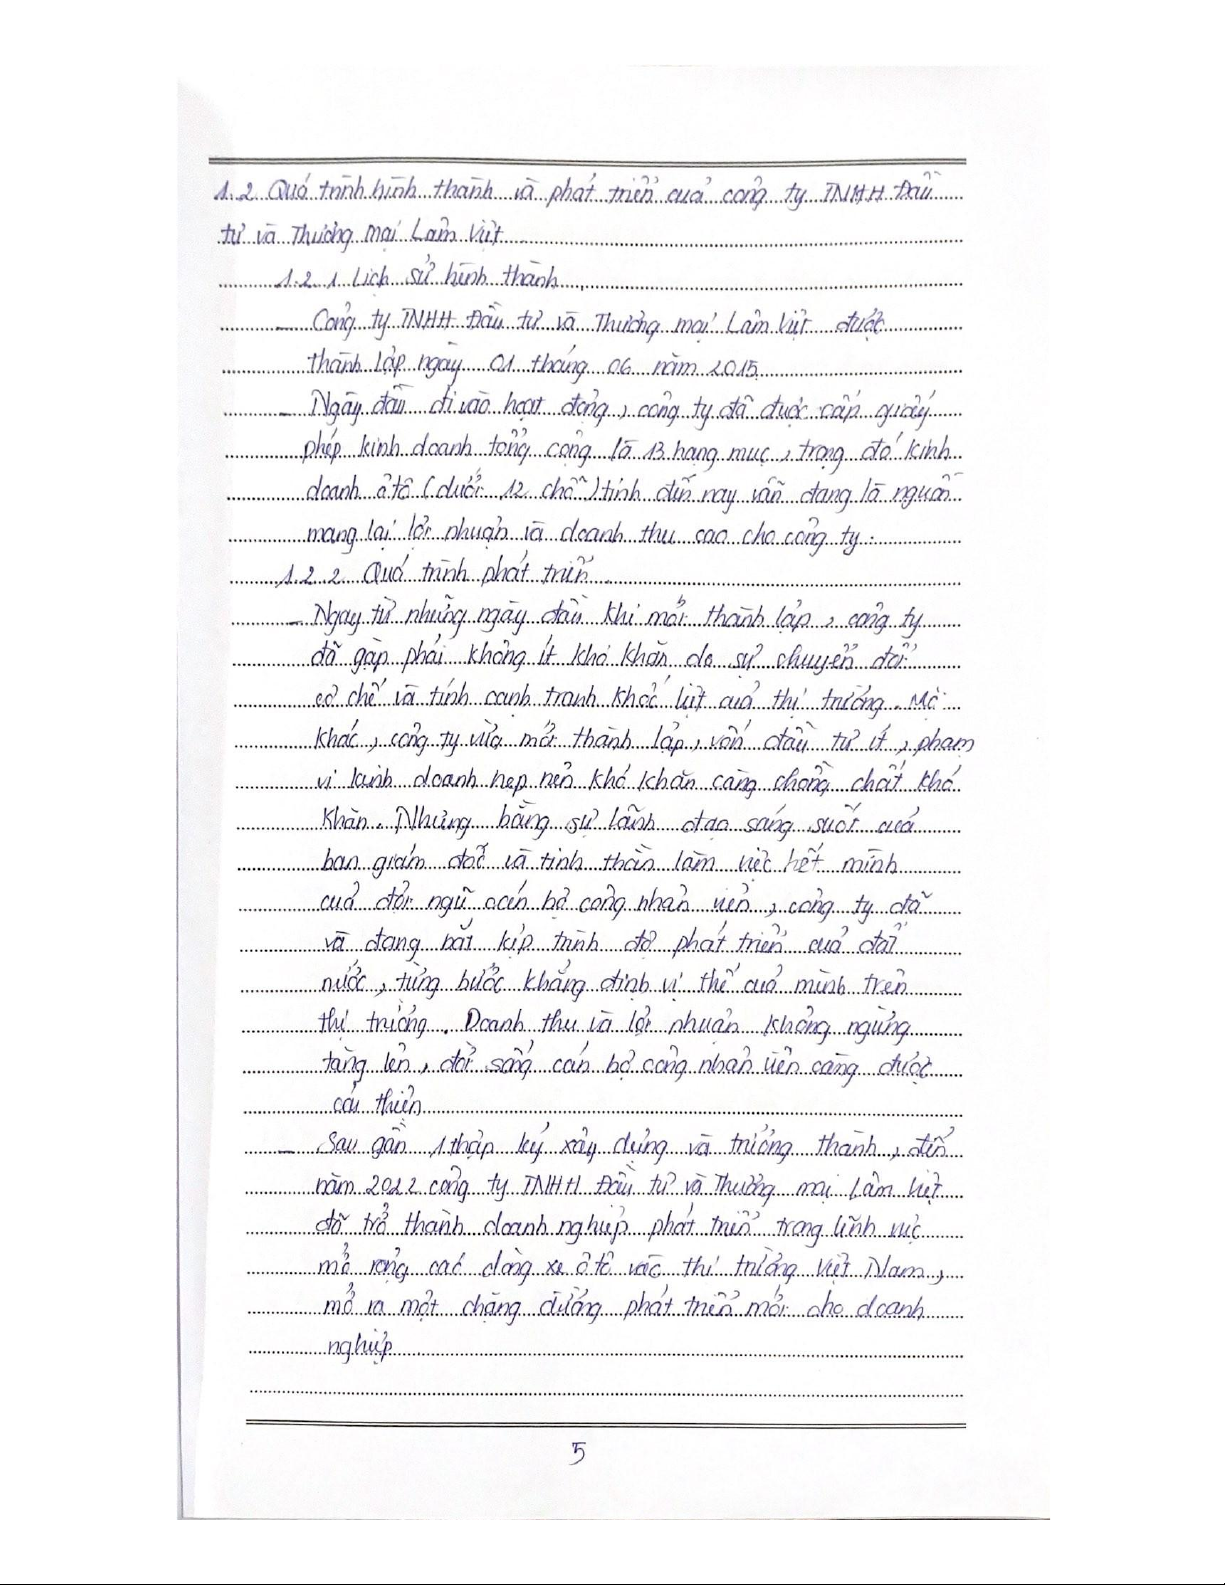 1.2 Quá trình hình thành và phát triển của công ty TNHH Đầu
tư và Thương mại Lâm Việt
1.2.1 Lịch sử hình thành
- Công ty TNHH Đầu tư và Thương mại Lâm Việt được
thành lập ngày 01 tháng 06 năm 2015
- Ngày đầu đi vào hoạt động, công ty đã được cấp giấy
phép kinh doanh tổng cộng là 13 hạng mục, trong đó kinh
doanh ô tô (dưới 12 chỗ) tính đến nay vẫn đang là nguồn
mang lại lợi nhuận và doanh thu cao cho công ty.
1.2.2 Quá trình phát triển
- Ngay từ những ngày đầu khi mới thành lập, công ty
đã gặp phải không ít khó khăn do sự chuyển đổi
cơ chế và tính cạnh tranh khốc liệt của thị trường. Mặ
khác, công ty vừa mới thành lập, vốn đầu tư ít, phạm
vi kinh doanh hẹp nên khó khăn càng chồng chất khó
khăn. Nhưng bằng sự lãnh đạo sáng suốt của
ban giám đốc và tinh thần làm việc hết mình
của đội ngũ cán bộ công nhân viên, công ty đã
và đang bắt kịp trình độ phát triển của đất
nước, từng bước khẳng định vị thế của mình trên
thị trường. Doanh thu và lợi nhuận không ngừng
tăng lên, đời sống cán bộ công nhân viên càng được
cải thiện
- Sau gần 1 thập kỷ xây dựng và trưởng thành, đến
năm 2022 công ty TNHH Đầu tư và Thương mại Lâm Việt
đã trở thành doanh nghiệp phát triển trong lĩnh vực
mở rộng các dòng xe ô tô vào thị trường Việt Nam,
mở ra một chặng đường phát triển mới cho doanh
nghiệp
5